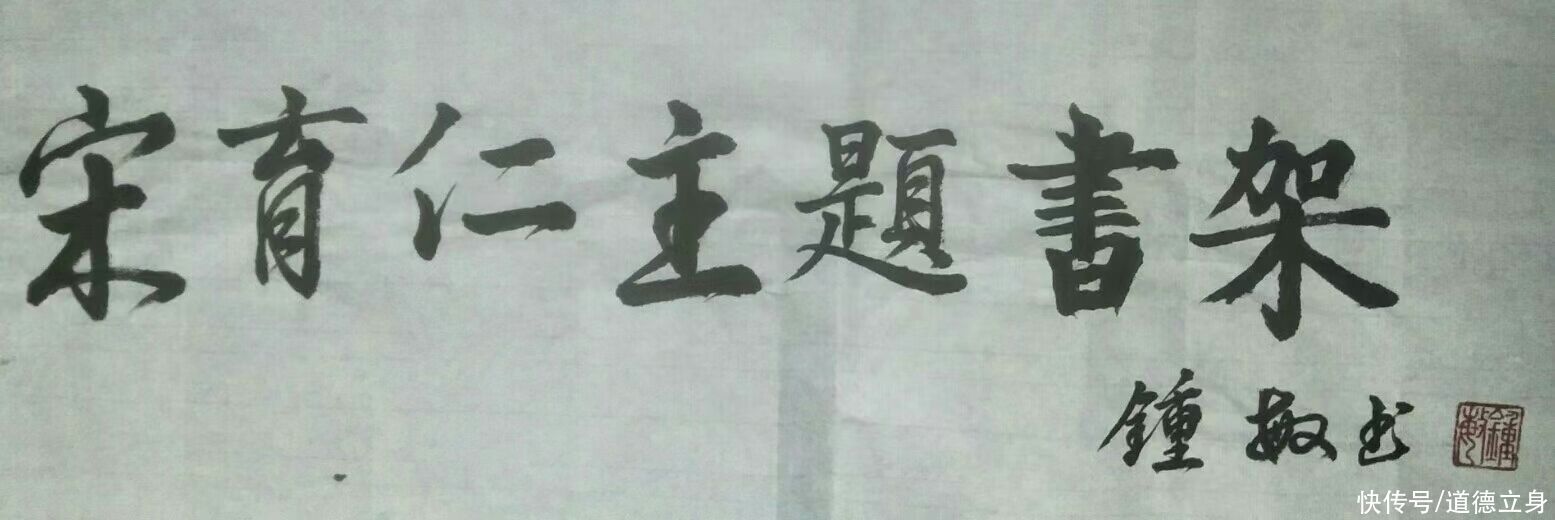 宋育仁主題書架
鍾敏书
鍾敏
快传号/道德立身